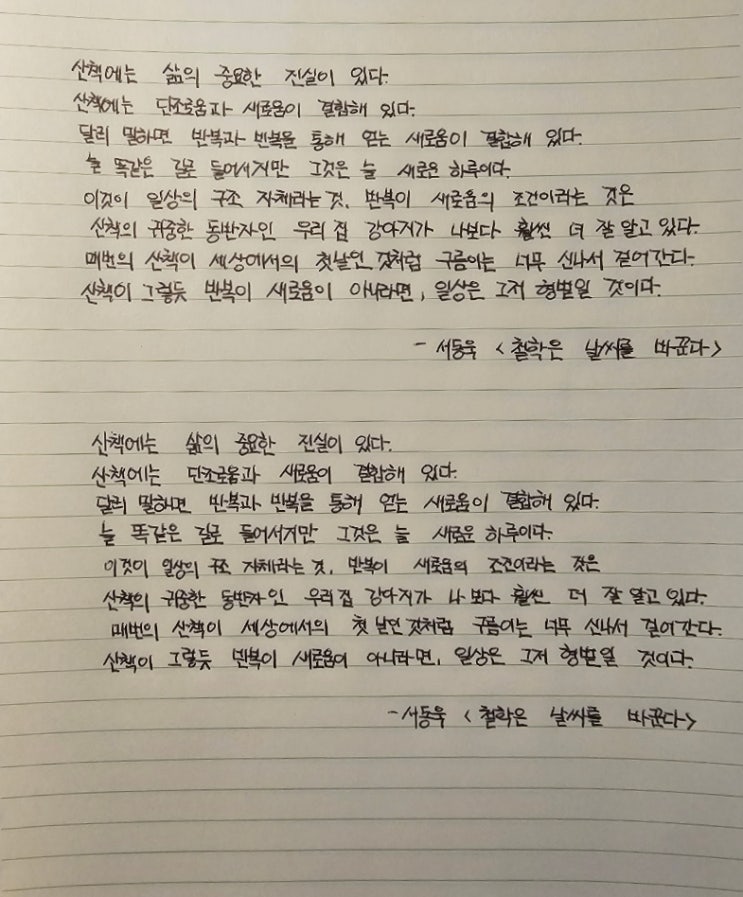 산책에는 삶의 중요한 진실이 있다.
산책에는 단조로움과 새로움이 결합해 있다.
달리 말하면 반복과 반복을 통해 얻는 새로움이 결합해 있다.
늘 똑같은 길로 들어서지만 그것은 늘 새로운 하루이다.
이것이 일상의 구조 자체라는 것. 반복이 새로움의 조건이라는 것은
산책의 귀중한 동반자인 우리 집 강아지가 나보다 훨씬 더 잘 알고 있다.
매번의 산책이 세상에서의 첫날인 것처럼 구름이는 너무 신나서 걸어간다.
산책이 그렇듯 반복이 새로움이 아니라면, 일상은 그저 형벌일 것이다.
- 서동욱 <철학은 날씨를 바꾼다>
산책에는 삶의 중요한 진실이 있다.
산책에는 단조로움과 새로움이 결합해 있다.
달리 말하면 반복과 반복을 통해 얻는 새로움이 결합해 있다.
늘 똑같은 길로 들어서지만 그것은 늘 새로운 하루이다.
이것이 일상의 구조 자체라는 것. 반복이 새로움의 조건이라는 것은
산책의 귀중한 동반자인 우리 집 강아지가 나보다 훨씬 더 잘 알고 있다.
매번의 산책이 세상에서의 첫 날인 것처럼 구름이는 너무 신나서 걸어간다.
산책이 그렇듯 반복이 새로움이 아니라면, 일상은 그저 형벌일 것이다.
- 서동욱 <철학은 날씨를 바꾼다>